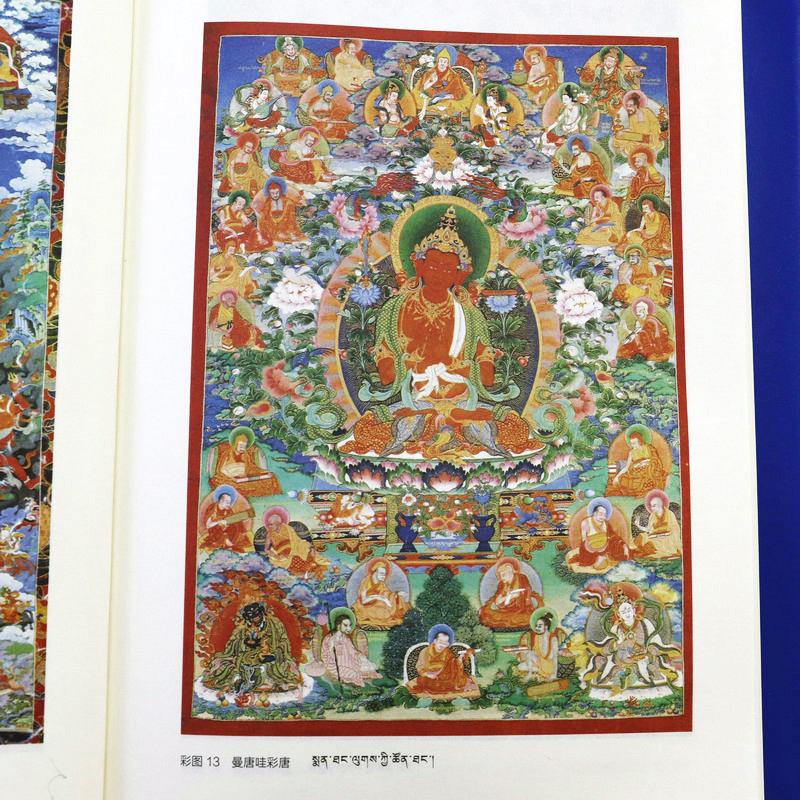 彩图 13 曼唐哇彩唐 སྨན་ཐང་ལུགས་ཀྱི་ཚོན་ཐང་།